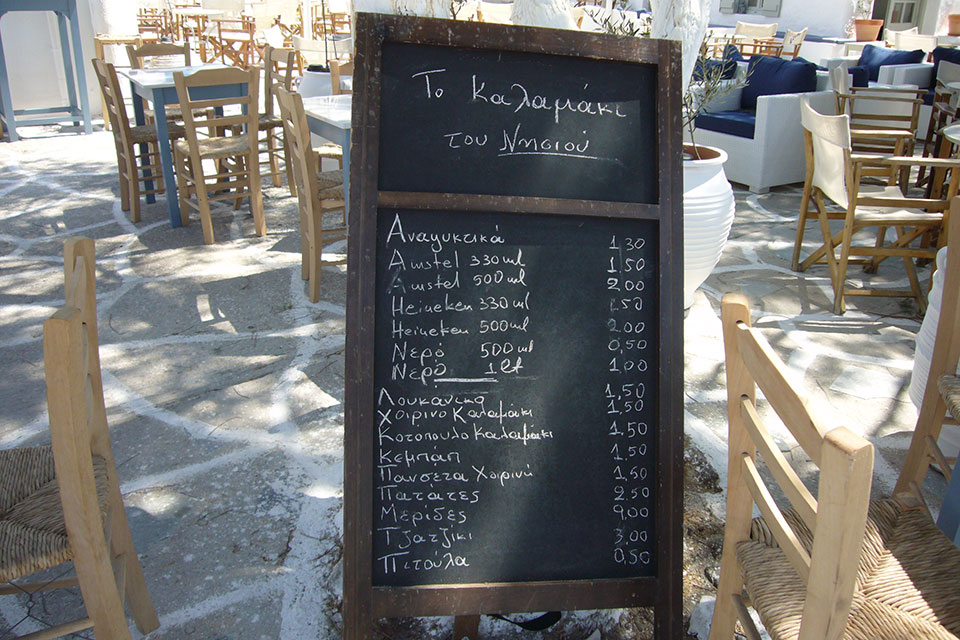 Το Καλαμάκι
του Νησιού
Αναψυκτικά 1,30
Amstel 330ml 1,50
Amstel 500ml 2,00
Heineken 330ml 1,50
Heineken 500ml 2,00
Νερό 500ml 0,50
Νερό 1lt 1,00
Λουκάνικο 1,50
Χοιρινο Καλαμάκι 1,50
Κοτοπουλο Καλαμάκι 1,50
Κεμπαπ 1,50
Πανσέτα Χοιρινή 1,50
Πατάτες 2,50
Μερίδες 9,00
Τζατζίκι 3,00
Πιτούλα 0,50